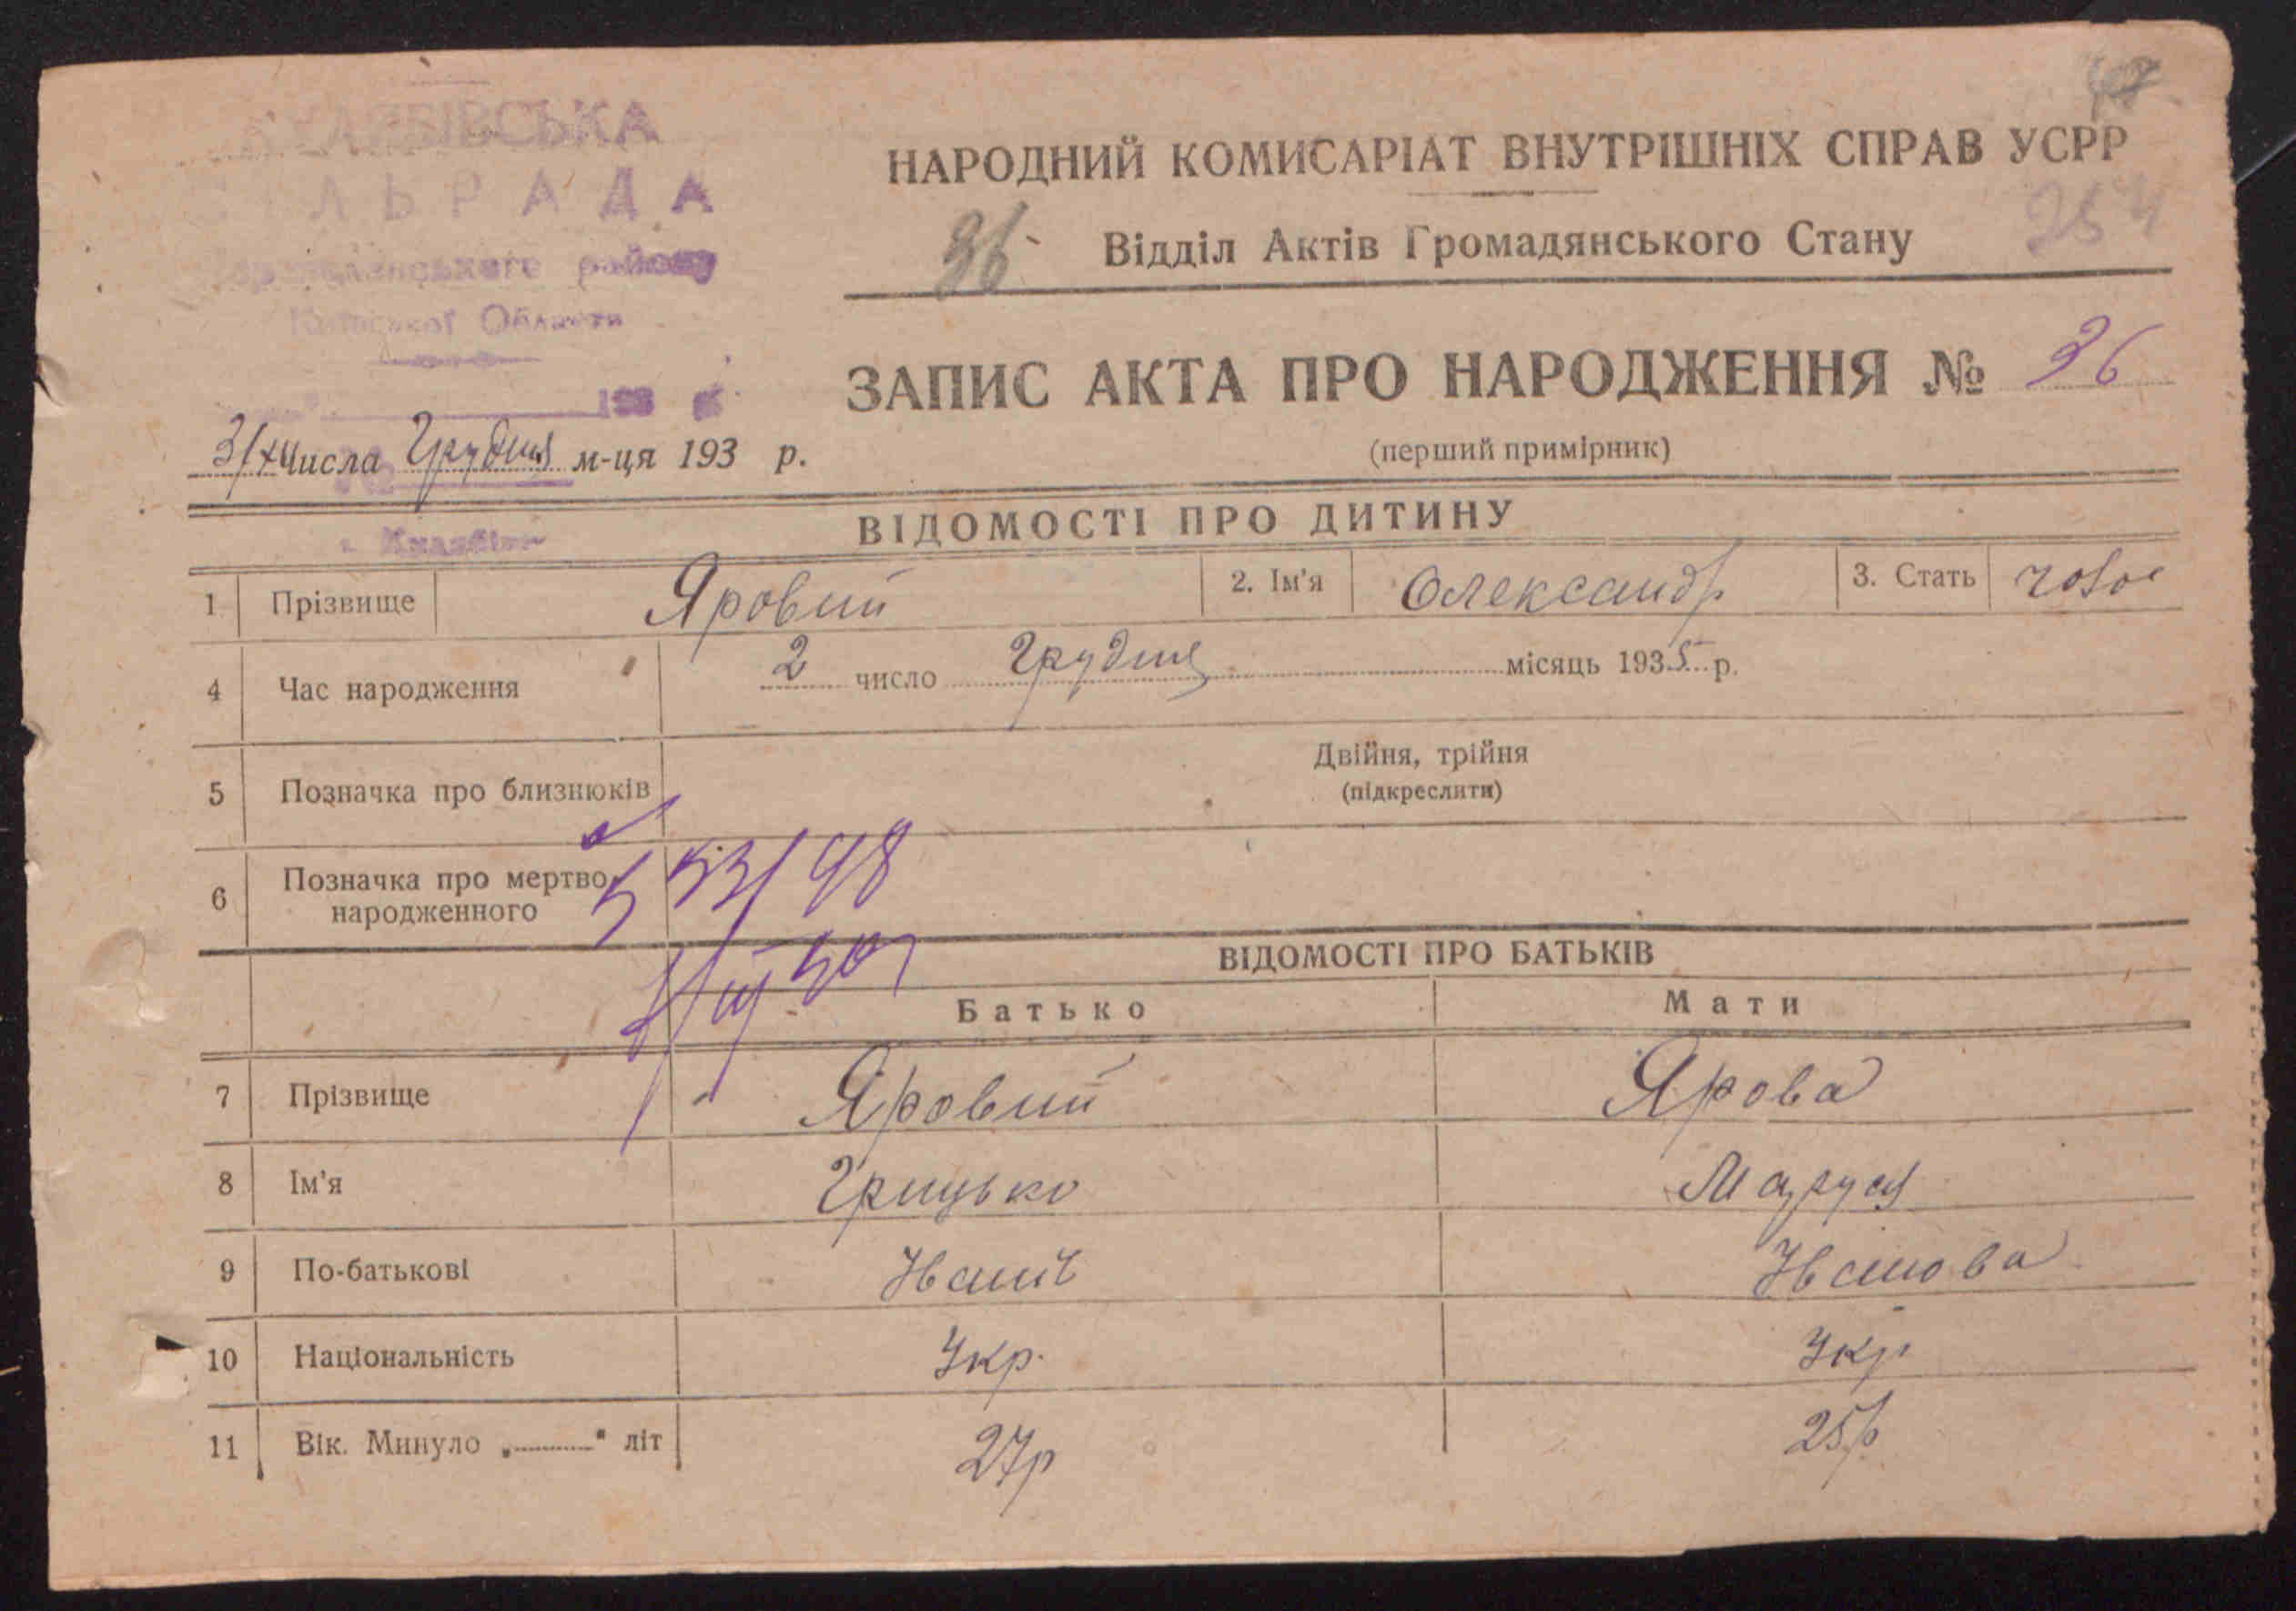 ЛЬРАДА
району
Київської Области
193
НАРОДНИЙ КОМИСАРІАТ ВНУТРІШНІХ СПРАВ УСРР
36
Відділ Актів Громадянського Стану
254
ЗАПИС АКТА ПРО НАРОДЖЕННЯ № 36
(перший примірник)
числа Грудня м-ця 193 р.
ВІДОМОСТІ ПРО ДИТИНУ
1 Прізвище Яровий 2. Ім'я Олександр 3. Стать чолов
4 Час народження 2 число Грудня місяць 1935 р.
5 Позначка про близнюків Двійня, трійня
(підкреслити)
6 Позначка про мертво-
народженного
ВІДОМОСТІ ПРО БАТЬКІВ
Батько Мати
7 Прізвище Яровий Ярова
8 Ім'я Грицько Маруся
9 По-батькові Іванів Іванова
10 Національність Укр. Укр
11 Вік. Минуло „ " літ 27р 25р